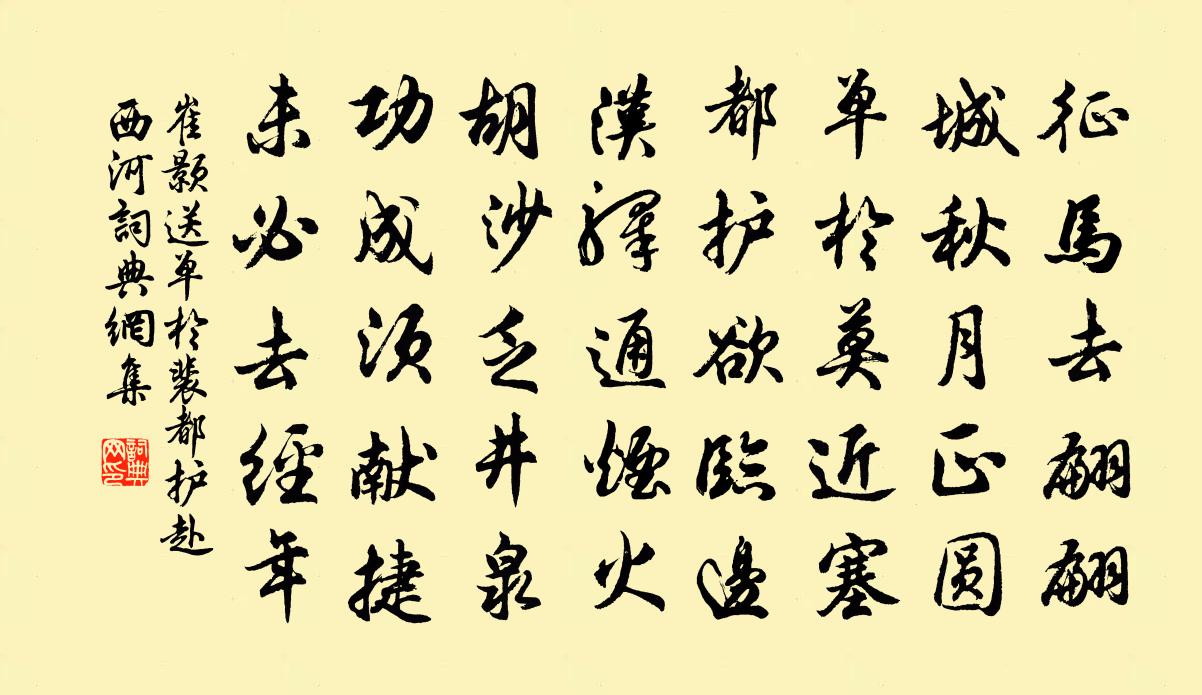 征馬去翩翩
城秋月正圆
单於莫近塞
都护欲臨邊
漢驛通煙火
胡沙乏井泉
功成须献捷
未必去經年
崔颢送单於裴都护赴
西河詞典網集
詞典网印